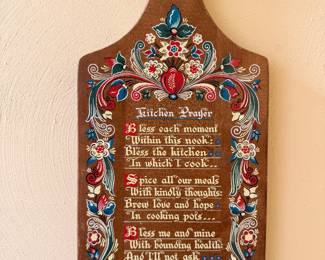 Kitchen Prayer
Bless each moment
Within this nook:
Bless the kitchen
In which I cook...
Spice all our meals
With kindly thoughts:
Brew love and hope
In cooking pots...
Bless me and mine
With bounding health:
And I'll not ask